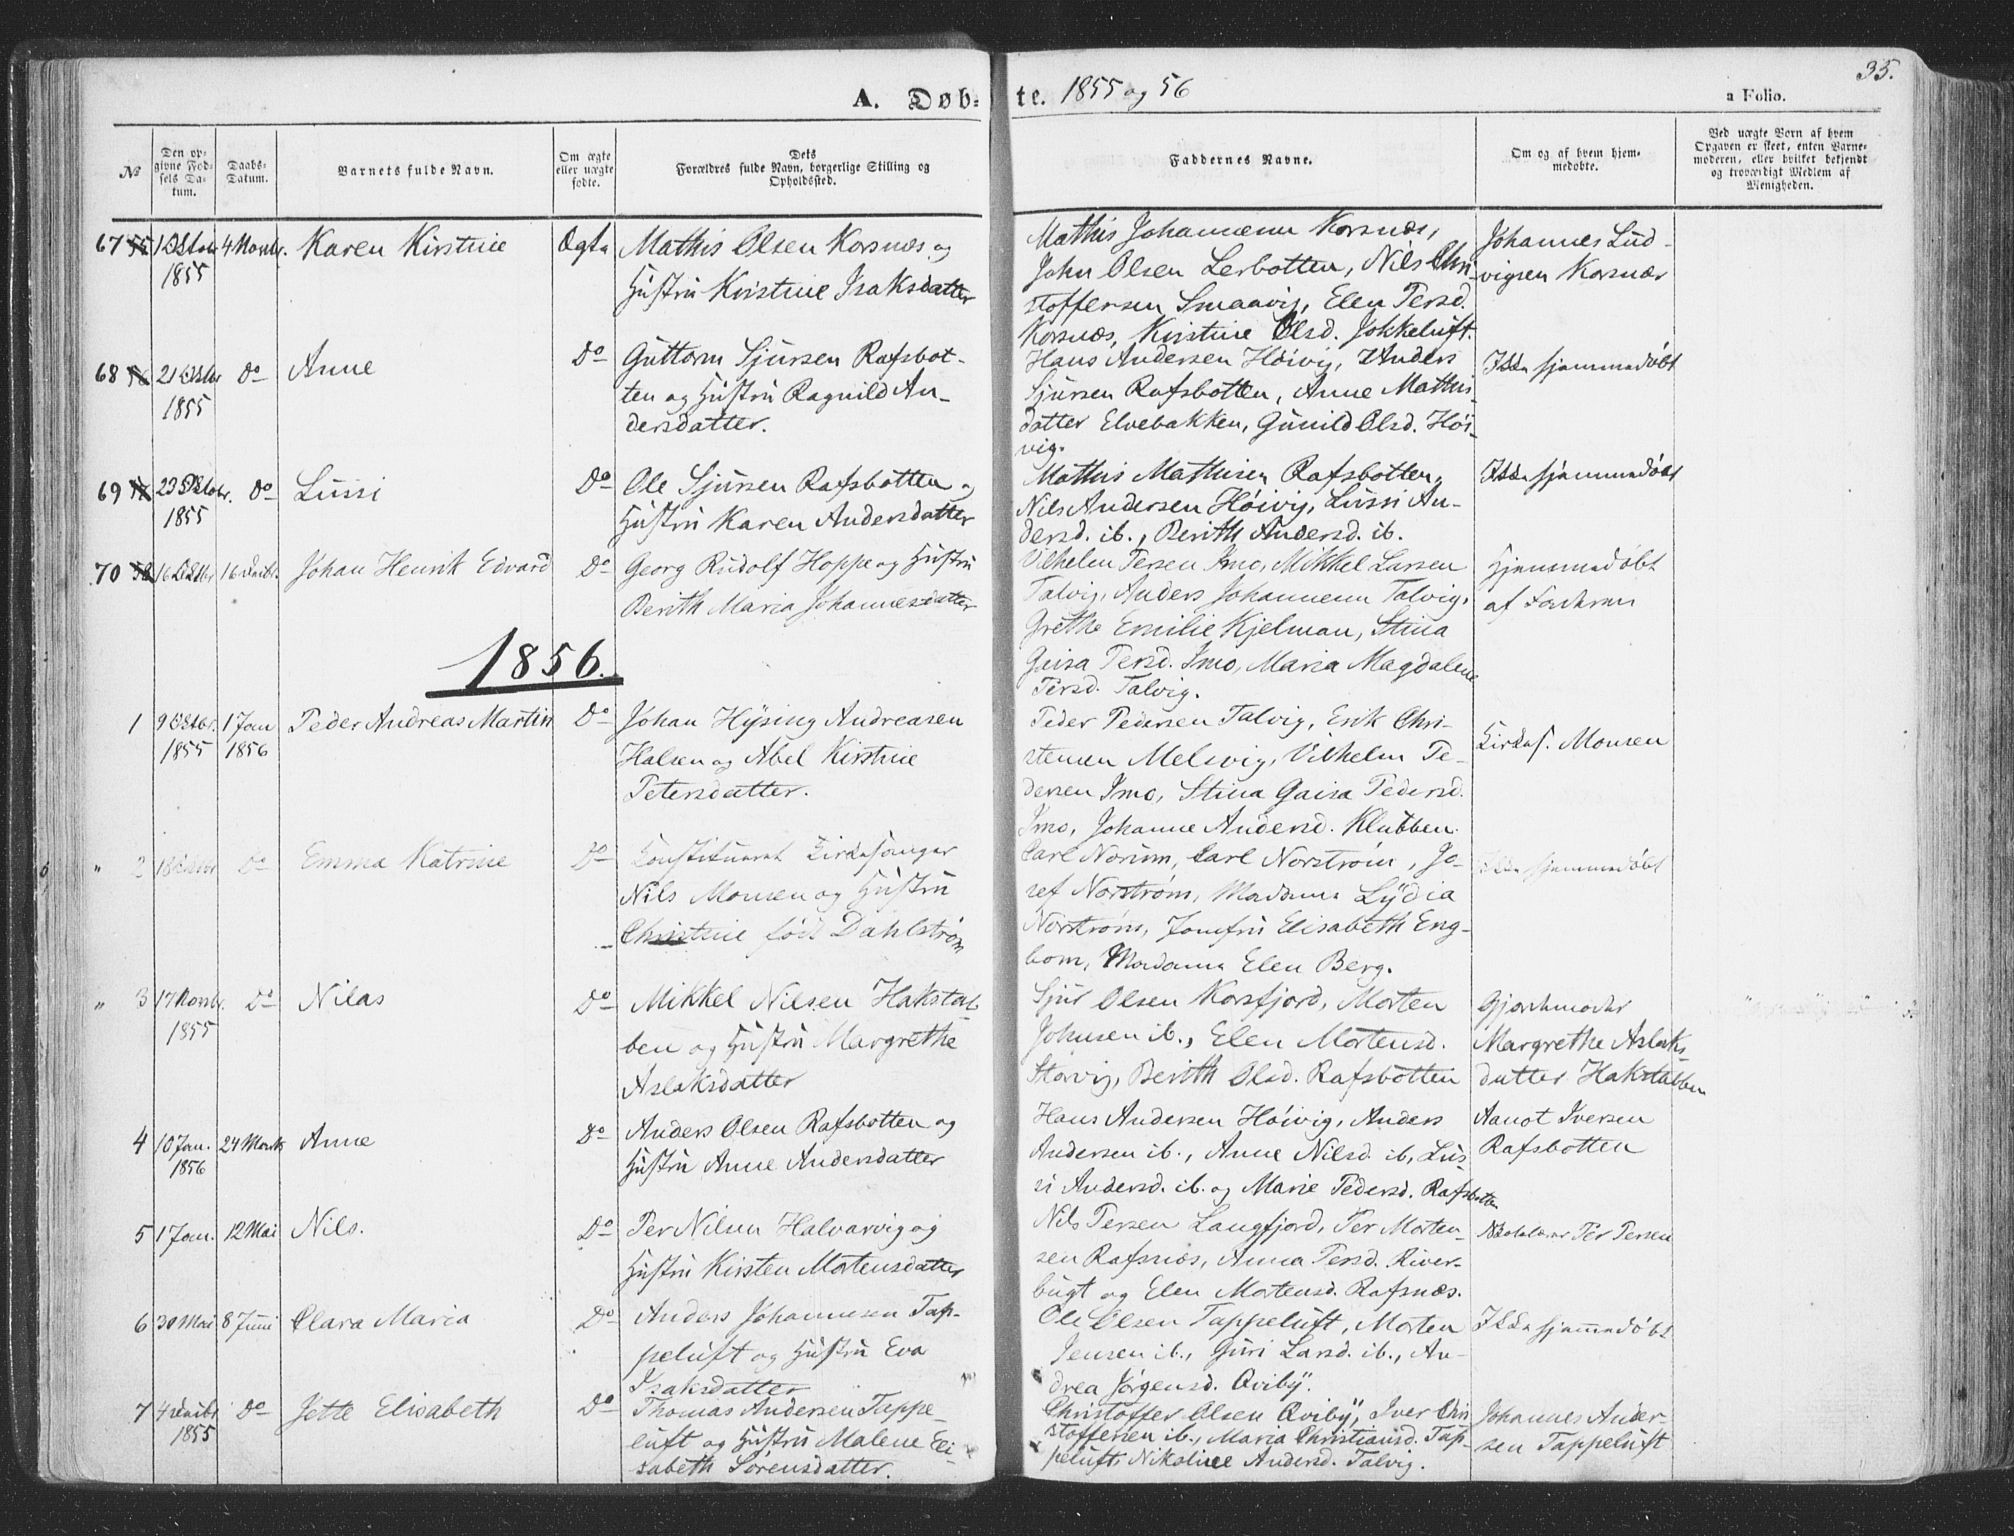 35.
A. Døbte. 1855 og 56
a Folio.
№
Den opgivne Fødsels Datum.
Daabs-Datum.
Barnets fulde Navn.
Om ægte eller uægte fødte.
Dets Forældres fulde Navn, borgerlige Stilling og Opholdssted.
Faddernes Navne.
Om og af hvem hjemmedøbte.
Ved uægte Børn af hvem Opgaven er skeet, enten Barnemoderen, eller hvilket bekjendt og troværdigt Medlem af Menigheden.
67 1 Octobr 1855 4 Novbr. Karen Kirstine Ægte
Mathis Olsen Korsnæs og
Hustru Kirstine Isaksdatter
Mathis Johannesen Korsnæs,
John Olsen Lerbotten, Nils Chri-
stoffersen Smaavig, Elen Persd.
Korsnæs, Kirstine Olsd. Jokkeluft.
Johannes Lud-
vigsen Korsnæs
68 21 Octbr 1855 Do Anne Do
Guttorm Sjursen Rafsbot-
ten og Hustru Ragnild An-
dersdatter.
Hans Andersen Høivig, Anders
Sjursen Rafsbotten, Anne Mathis-
datter Elvebakken, Gunild Olsd. Høi-
vig.
Ikke hjemmedøbt
69 23 Octobr. 1855 Do Lussi Do
Ole Sjursen Rafsbotten og
Hustru Karen Andersdatter
Mathis Mathisen Rafsbotten,
Nils Andersen Høivig, Lussi An-
dersd. ib., Berith Andersd. ib.
Ikke hjemmedøbt
70 16 Octbr 16 Decbr. Johan Henrik Edvard Do
Georg Rudolf Hoppe og Hustru
Berith Maria Johannesdatter
Vilhelm Persen Imo, Mikkel Larsen
Talvig, Anders Johannesen Talvig,
Grethe Emilie Kjelman, Stina
Gaisa Persd. Imo, Maria Magdalene
Persd. Talvig.
Hjemmedøbt
af Faderen
1856.
1 9 Octbr. 1855 1 Jan 1856 Peder Andreas Martin Do
Johan Hysing Andreasen
Halsen og Abel Kirstine
Petersdatter.
Peder Pedersen Talvig, Erik Chri-
stensen Melsvig, Vilhelm Pe-
dersen Imo, Stina Gaisa Pedersd.
Imo, Johanne Andersd. Klubben.
Kirkes. Monsen
" 2 18 Octbr Do Emma Katrine Do
Konstitueret Kirkesanger
Nils Monsen og Hustru
Christine født Dahlstrøm
Carl Norum, Carl Norstrøm, Jo-
sef Norstrøm, Madame Lydia
Norstrøm, Jomfru Elisabeth Eng-
bom, Madame Elen Berg.
Ikke hjemmedøbt
" 3 17 Novbr. 1855 Do Nilas Do
Mikkel Nilsen Hakstab-
ben og Hustru Margrethe
Aslaksdatter
Sjur Olsen Korsfjord, Morten
Johnsen ib., Elen Mortensd.
Storvig, Berith Olsd. Rafsbotten
Gjordemoder
Margrethe Aslaks-
datter Hakstabben
4 10 Jan. 1856 24 Marts Anne Do
Anders Olsen Rafsbotten og
Hustru Anne Andersdatter
Hans Andersen Høivig, Anders
Andersen ib., Anne Nilsd. ib, Lus-
si Andersd. ib. og Marie Pedersd. Rafsbotten
Aanot Iversen
Rafsbotten
5 1 Jan. 12 Mai Nils. Do
Per Nilsen Halvarvig og
Hustru Kirsten Mortensdatter
Nils Persen Langfjord, Per Morten-
sen Rafsnæs, Anna Persd. River-
bugt og Elen Mortensd. Rafsnæs.
Skolelærer Per Persen
6 30 Mai 8 Juni Clara Maria Do
Anders Johannesen Tap-
peluft og Hustru Eva
Isaksdatter
Ole Olsen Tappeluft, Morten
Jensen ib., Guri Larsd. ib., An-
drea Jørgensd. Qviby.
Ikke hjemmedøbt
7 4 Decbr 1855 Do Jette Elisabeth Do
Thomas Andersen Tappe-
luft og Hustru Malene Eli-
sabeth Sørensdatter.
Christoffer Olsen Qviby, Iver Chri-
stoffersen ib., Maria Christiansd. Tap-
peluft, Nikoline Andersd. Talvig.
Johannes Ander-
sen Tappeluft